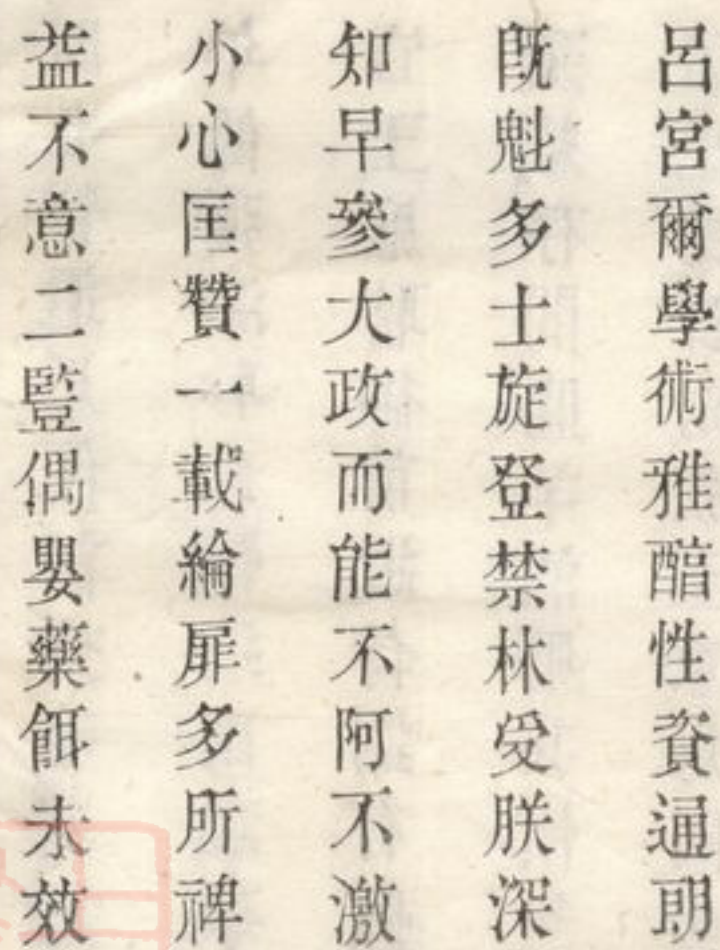 呂宮爾學術雅醅性資通朗
旣魁多士旋登禁林受朕深
知早參大政而能不阿不激
小心匡贊一載綸扉多所裨
益不意二豎偶嬰藥餌未效